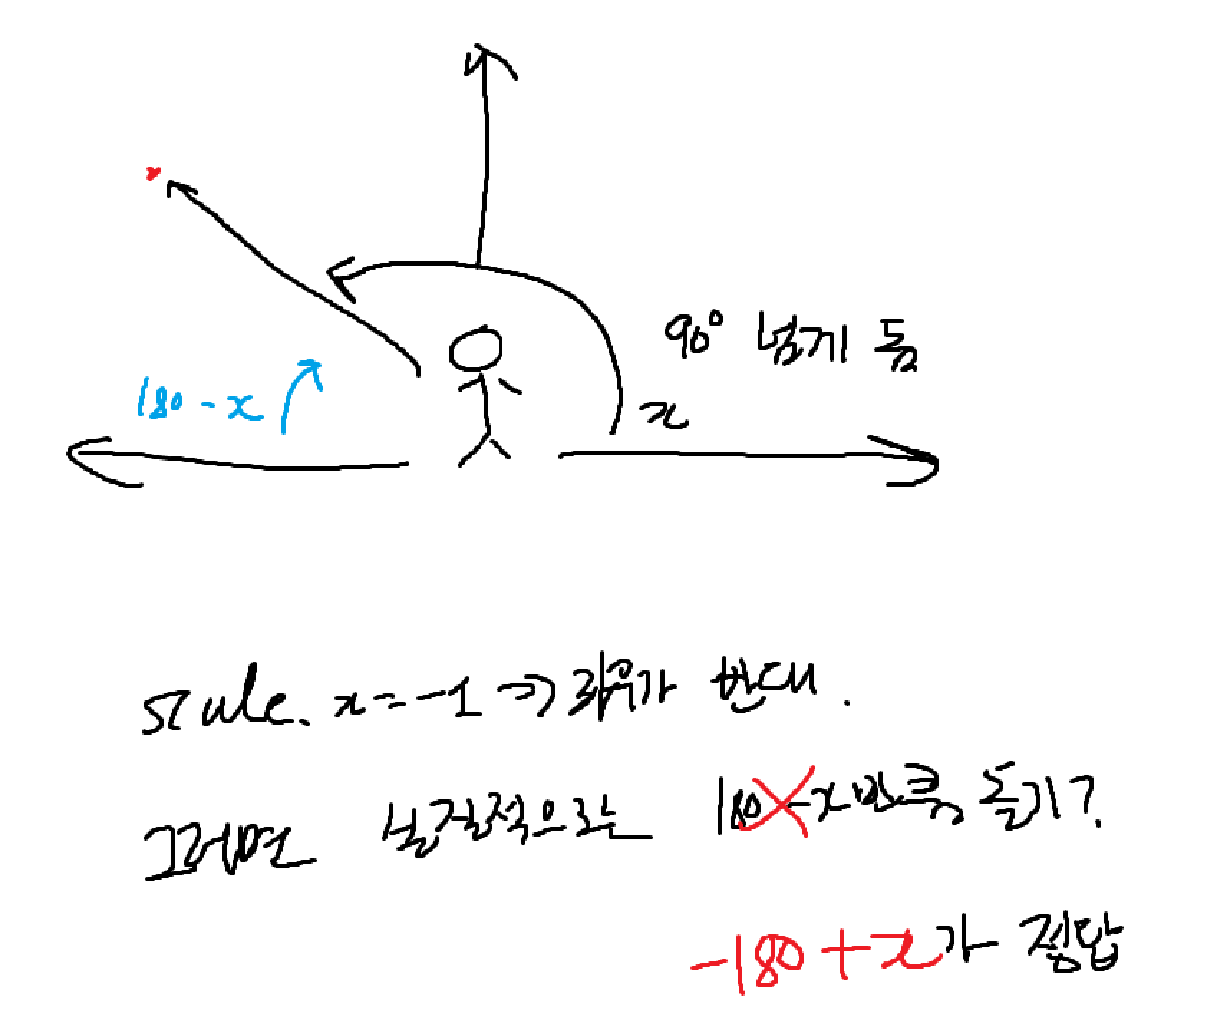 90°넘게 돔
x
180 - x
scale. x = -1 => 좌우가 반대.
그러면 실질적으로는 180 - x만큼 돌기?
-180 + x가 정답